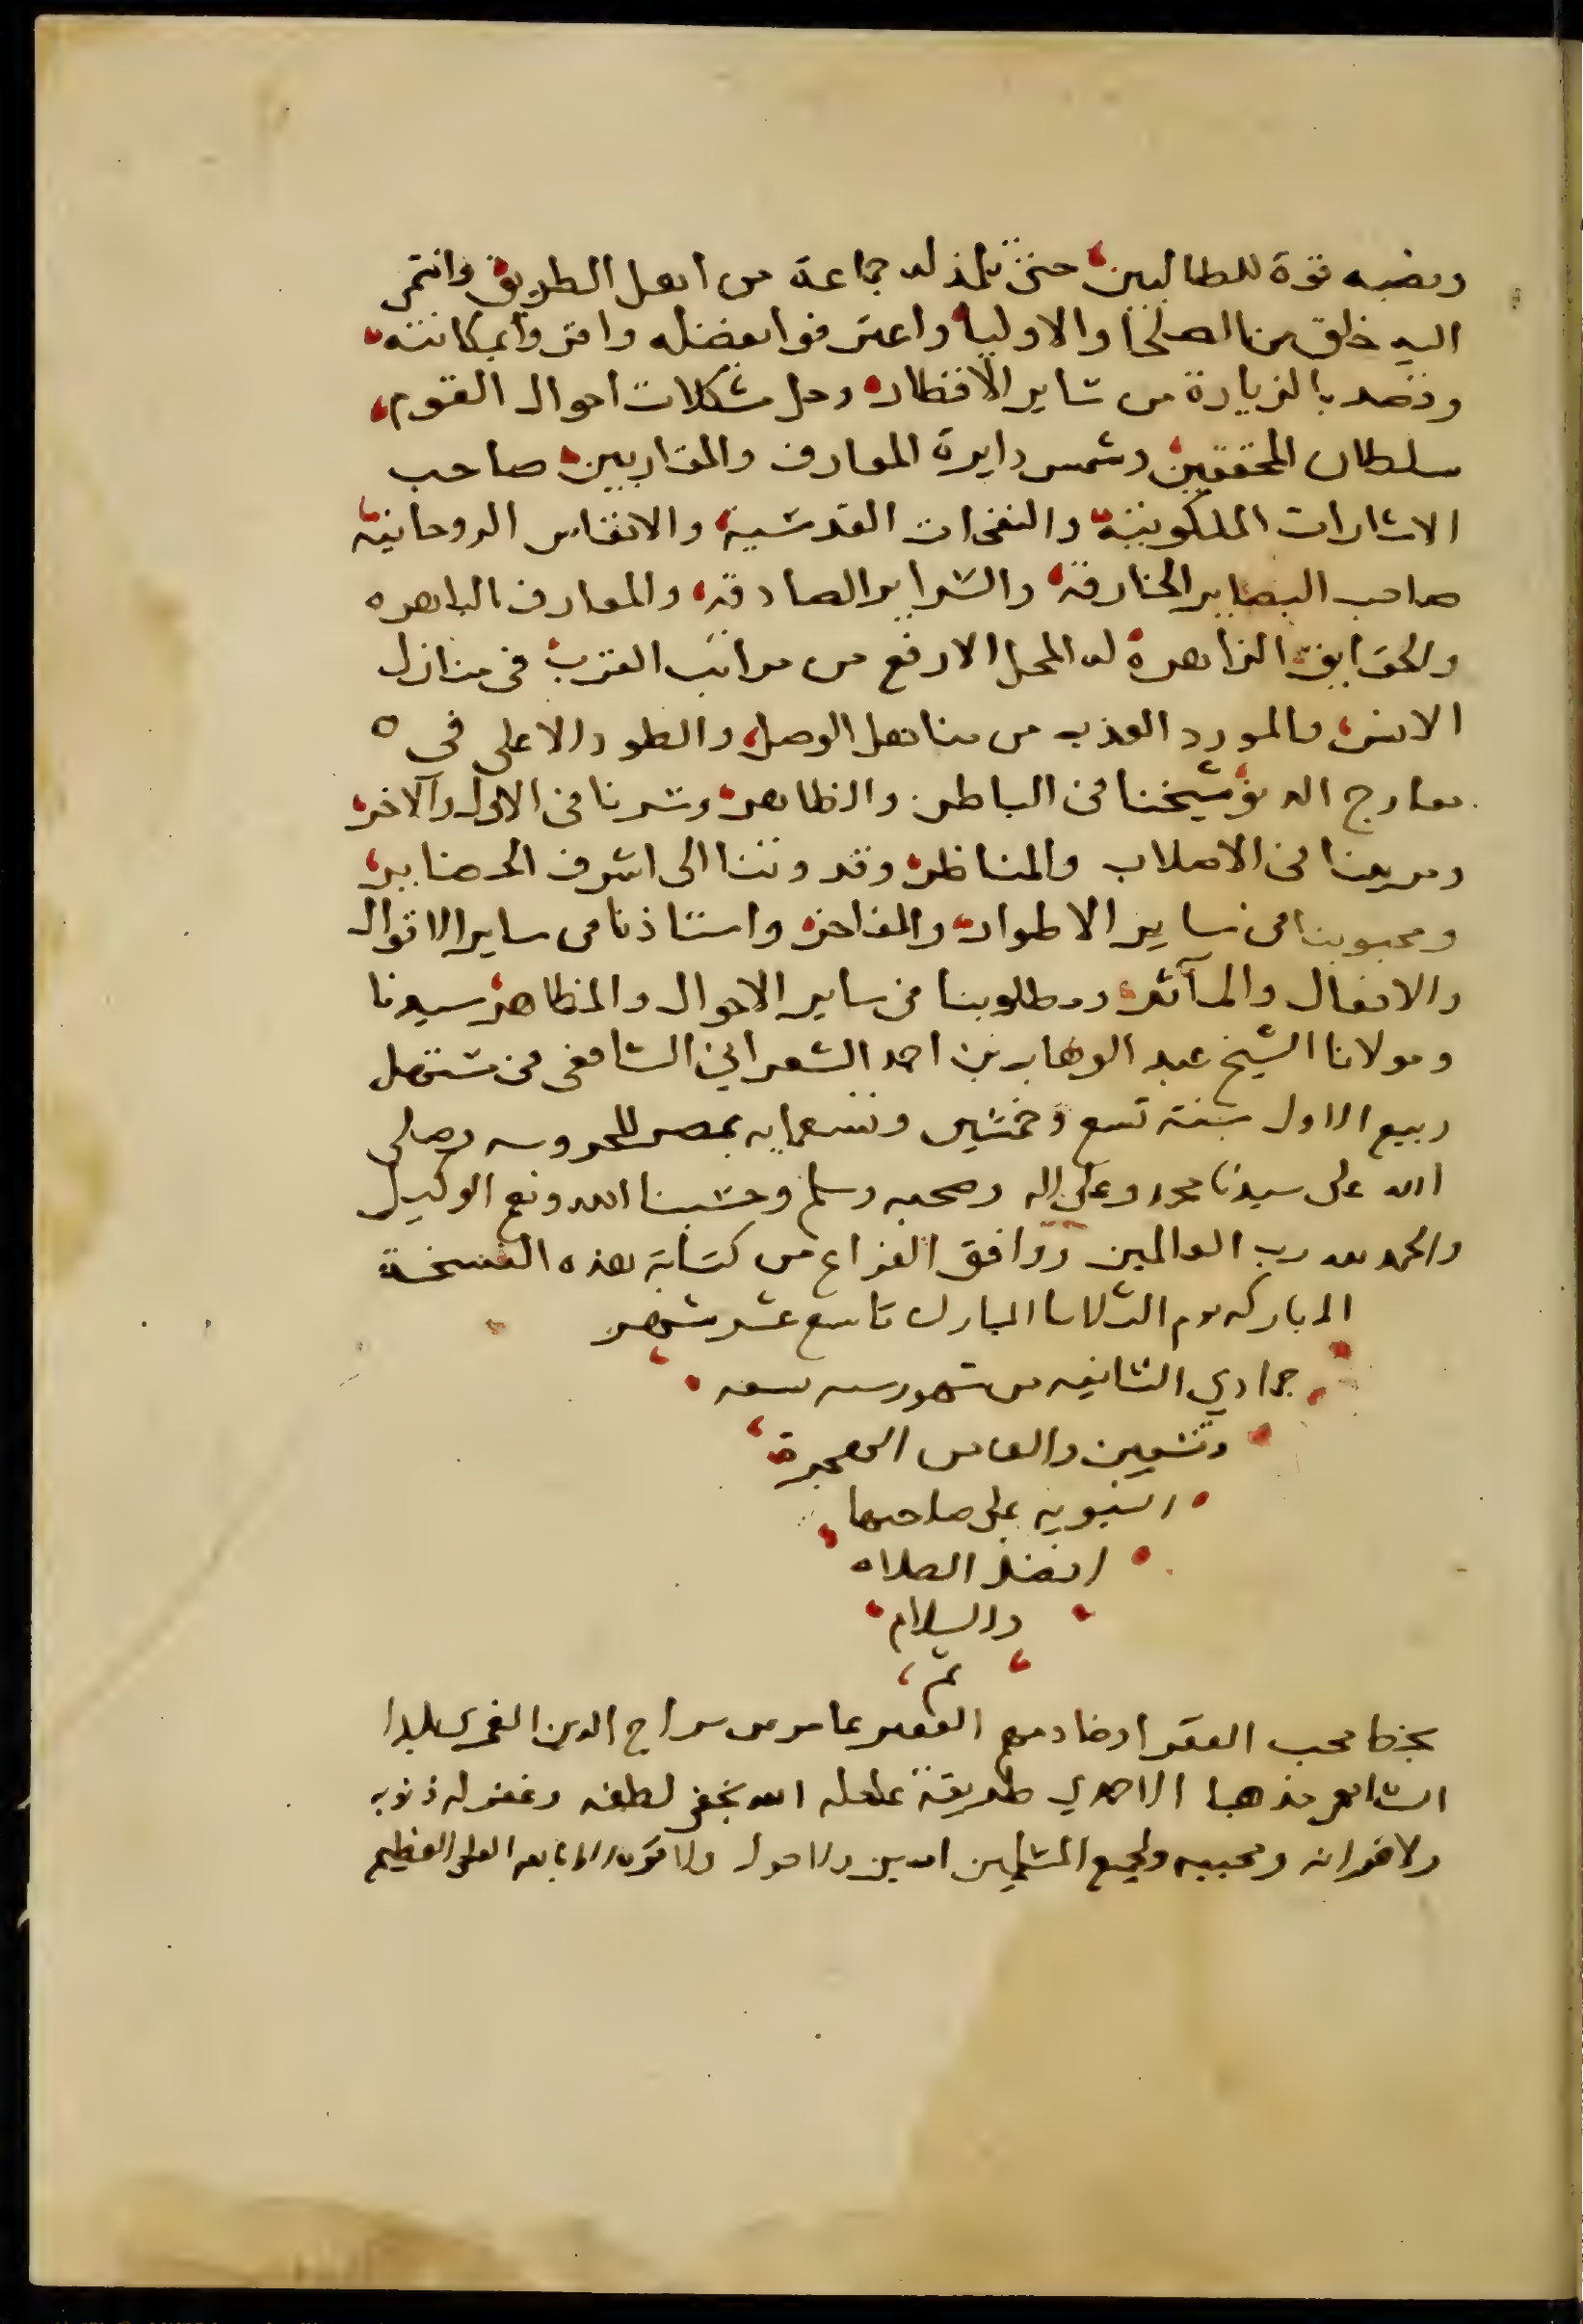 ونصبه قوة للطالبين حتى تلمذ له جماعة من اهل الطريق وانتمى
اليه خلق من الصلحا والاوليا واعترفوا بفضله واقروا بمكانته
وقصد بالزيارة من ساير الاقطار وحل مشكلات احوال القوم
سلطان المحققين وشمس دايرة المعارف والمقاربين صاحب
الاشارات الملكوتية والنفحات القدسية والانفاس الروحانية
صاحب البصاير الخارقة والسراير الصادقة والمعارف الباهره
والحقايق الزاهرة له المحل الارفع من مراتب القرب في منازل
الانس والمورد العذب من مناهل الوصل والطود الاعلى في
معارج الدنو شيخنا في الباطن والظاهر وسرنا في الاول والاخر
ومربينا في الاصلاب والمناظر وقدوتنا الى اشرف الحضاير
ومحبوبنا في ساير الاطوار والمفاخر واستاذنا في ساير الاقوال
والافعال والمآثر ومطلوبنا في ساير الاحوال والمظاهر سيدنا
ومولانا الشيخ عبد الوهاب بن احمد الشعراني الشافعي في مستهل
ربيع الاول سنة تسع وخمسين وتسعمايه بمصر المحروسه وصلى
الله على سيدنا محمد وعلى اله وصحبه وسلم وحسبنا الله ونعم الوكيل
والحمد لله رب العالمين ووافق الفراغ من كتابة هذه النسخة
المباركه يوم الثلاثا المبارك تاسع عشر شهر
جمادي الثانيه من شهور سنه
وتسعين والف من الهجرة
النبويه على صاحبها
افضل الصلاه
والسلام
تم
بخط محب الفقرا وخادمهم الفقير عامر بن سراج الدين بلدا
الشافعي مذهبا الاحمدي طريقة عامله الله بخفي لطفه وغفر له ذنوبه
ولاخوانه ومحبيه ولجميع المسلمين امين ولا حول ولا قوة الا بالله العلي العظيم